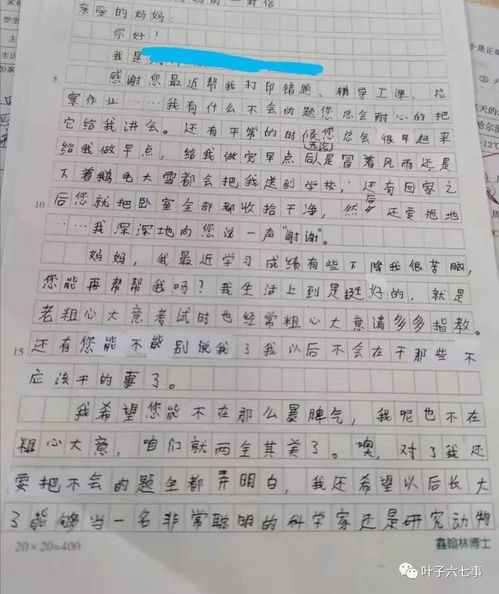 的一封信
亲爱的妈妈:
你好!
我是
感谢您最近帮我打印错题、辅导上课、检
查作业……我有什么不会的题您总会耐心的把
它给我讲会。还有平常的时候您总会很早起来
给我做早点,给我做完早点后无论是冒着风雨还是
下着鹅毛大雪都会把我送到学校,还有回家之
后您就把卧室全部都收拾干净,然后还要拖地
……我深深地向您说一声“谢谢”。
妈妈,我最近学习成绩有些下降我很苦恼,
您能再帮帮我吗?我生活上到是挺好的,就是
老粗心大意考试时也经常粗心大意请多多指教。
还有您能不能别说我了我以后不会在干那些不
应该干的事了。
我希望您能不在那么暴脾气,我呢也不在
粗心大意,咱们就两全其美了。噢,对了我还
要把不会的题全都弄明白,我还希望以后长大
了能够当一名非常聪明的科学家还是研究动物
5
10
15
20×20=400
鑫翰林博士
叶子六七事